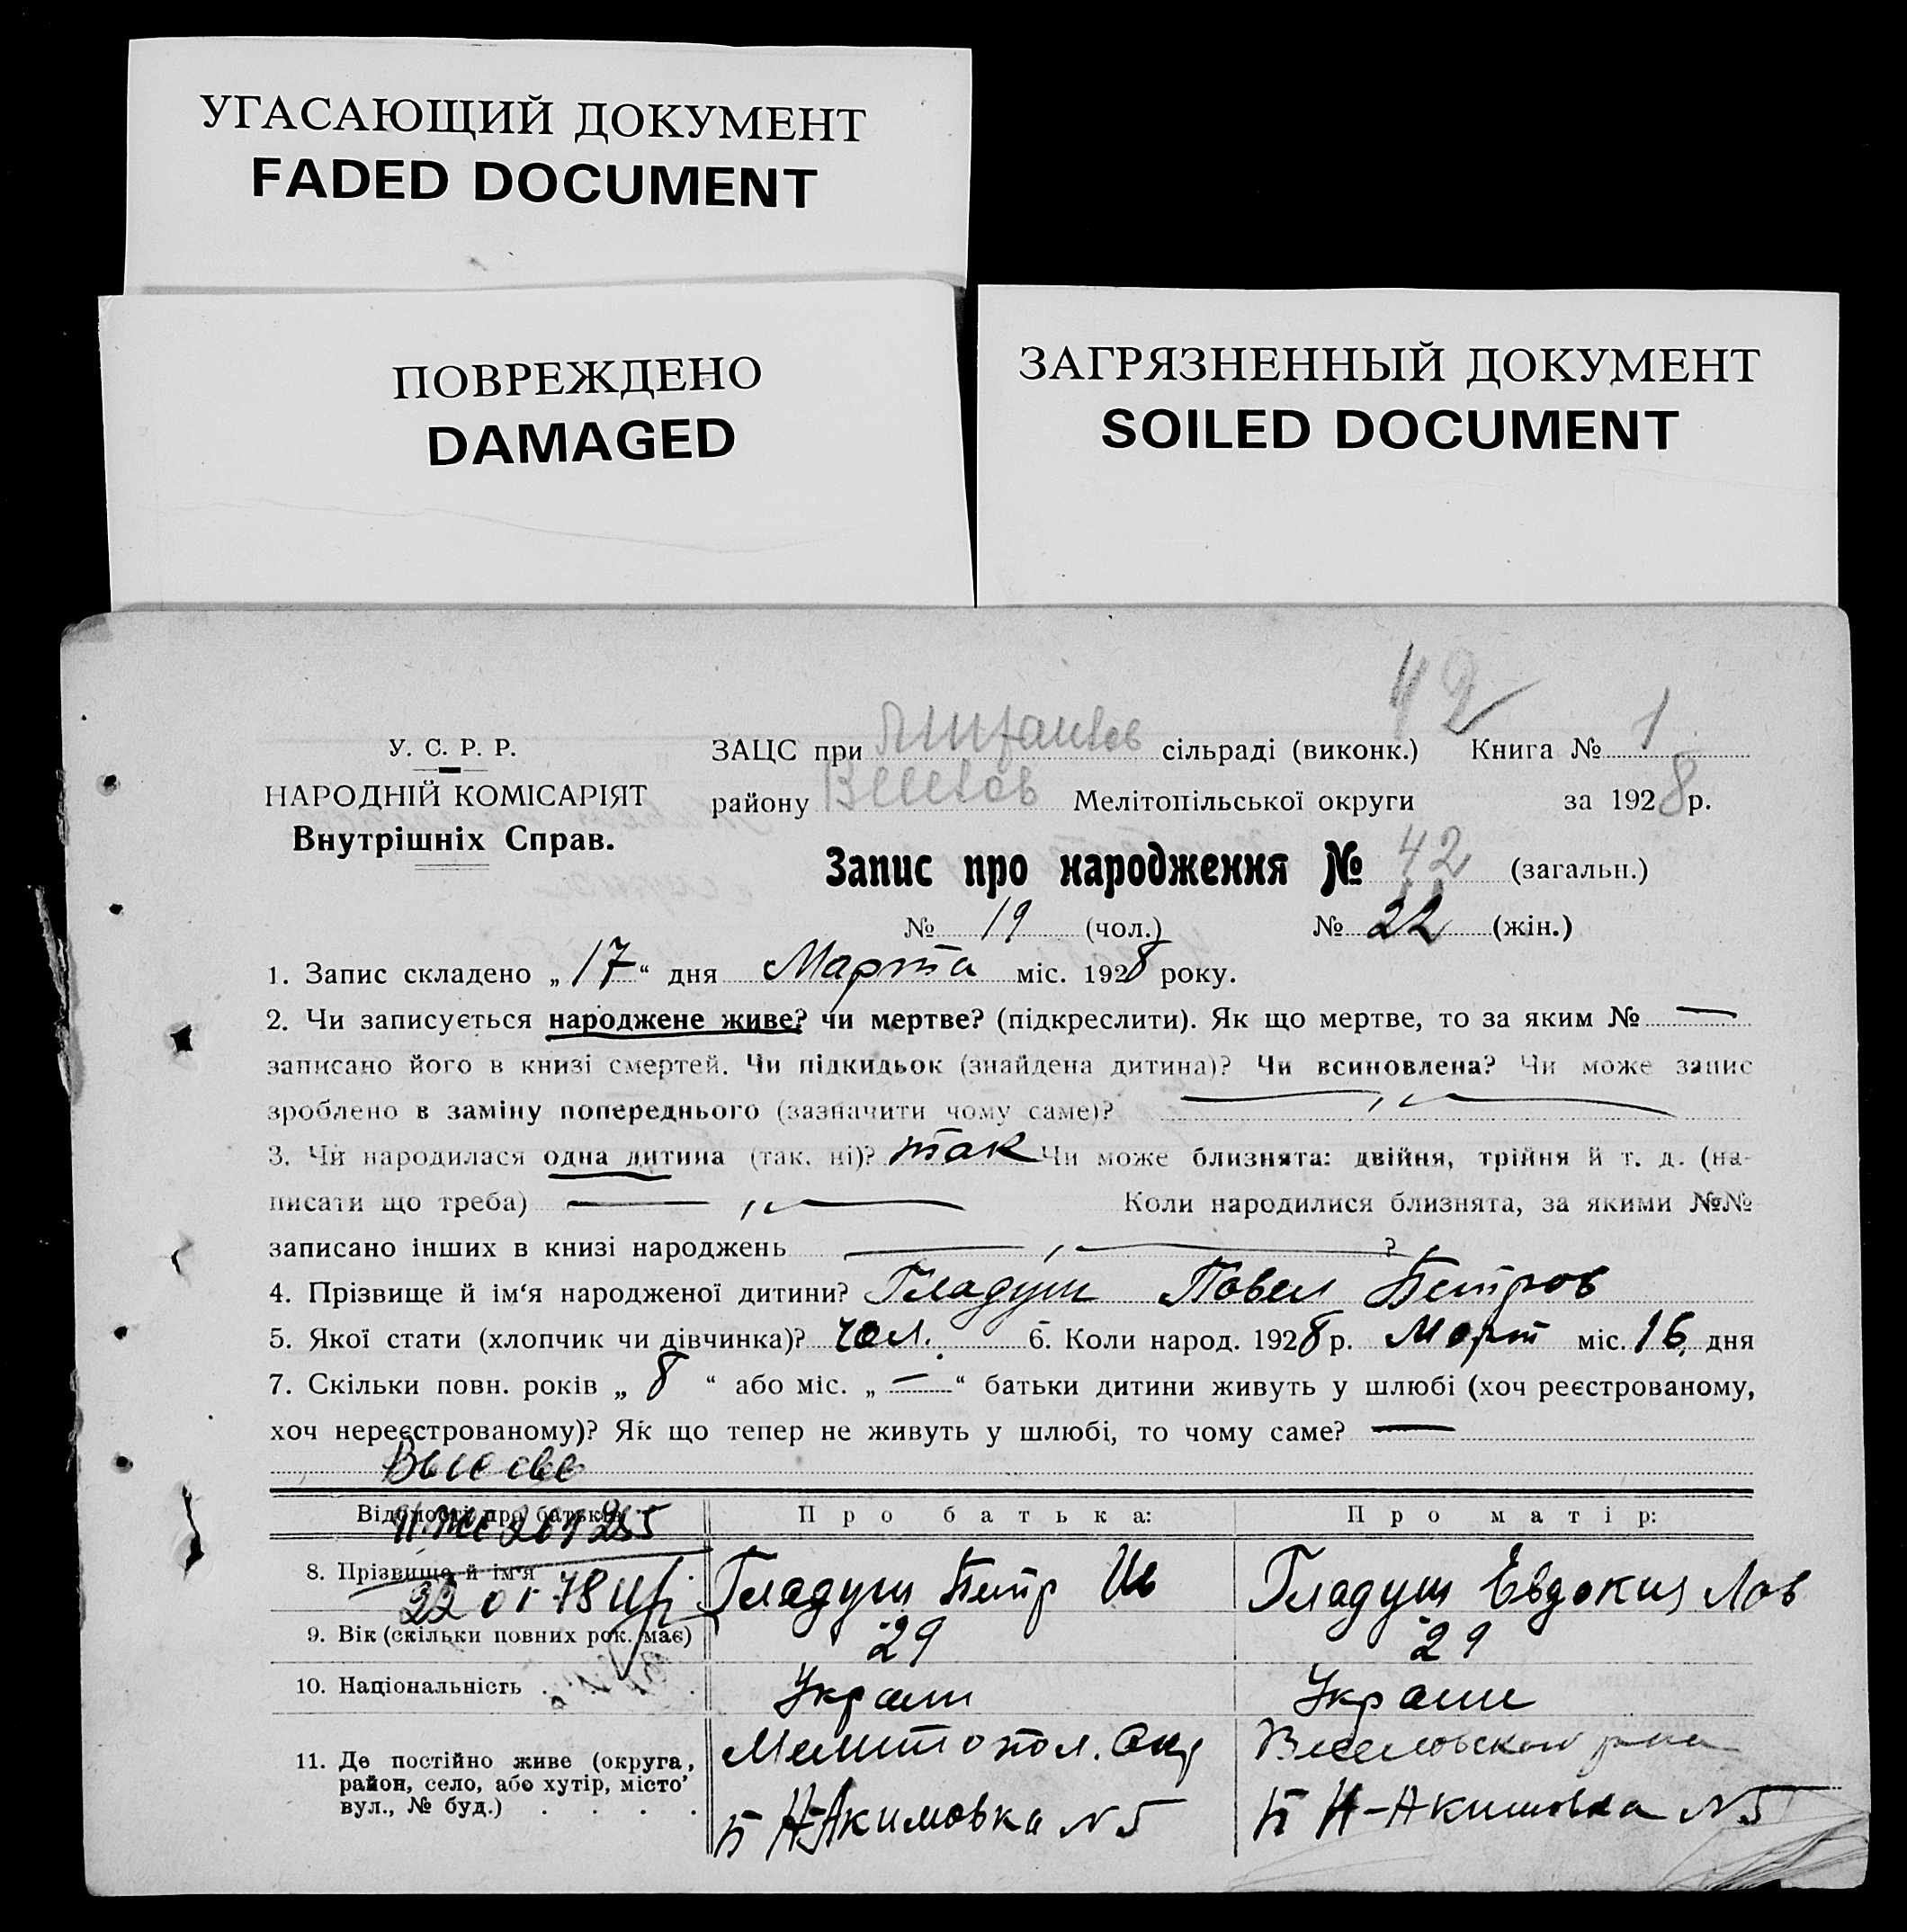 УГАСАЮЩИЙ ДОКУМЕНТ
FADED DOCUMENT
ПОВРЕЖДЕНО
DAMAGED
ЗАГРЯЗНЕННЫЙ ДОКУМЕНТ
SOILED DOCUMENT
42
У. С. Р. Р.
НАРОДНІЙ КОМІСАРІЯТ
Внутрішніх Справ.
ЗАЦС при сільраді (виконк.) Книга № 1
району Веселов Мелітопільської округи за 1928 р.
Запис про народження № 42 (загальн.)
№ 19 (чол.) № 22 (жін.)
1. Запис складено „17“ дня Марта міс. 1928 року.
2. Чи записується народжене живе? чи мертве? (підкреслити). Як що мертве, то за яким № —
записано його в книзі смертей. Чи підкидьок (знайдена дитина)? Чи всиновлена? Чи може запис
зроблено в заміну попереднього (зазначити чому саме)? — „ —
3. Чи народилася одна дитина (так, ні)? так Чи може близнята: двійня, трійня й т. д. (на-
писати що треба) — „ — Коли народилися близнята, за якими №№
записано інших в книзі народжень — „ — ?
4. Прізвище й ім‘я народженої дитини? Гладуш Повел Петров
5. Якої стати (хлопчик чи дівчинка)? чол. 6. Коли народ. 1928 р. Март міс. 16 дня
7. Скільки повн. років „ 8 “ або міс. „ — “ батьки дитини живуть у шлюбі (хоч реєстрованому,
хоч нереєстрованому)? Як що тепер не живуть у шлюбі, то чому саме? —
Відомості про батьків Про батька: Про матір:
8. Прізвище й ім‘я Гладуш Петр Ив Гладуш Евдокия Лав
9. Вік (скільки повних рок. має) 29 29
10. Національність . . . . Украин Украин
11. Де постійно живе (округа, Мелитопол. Окр Веселовского р-на
район, село, або хутір, місто’
вул., № буд.) . . . . Н-Акимовка N 5 Н-Акимовка N 5